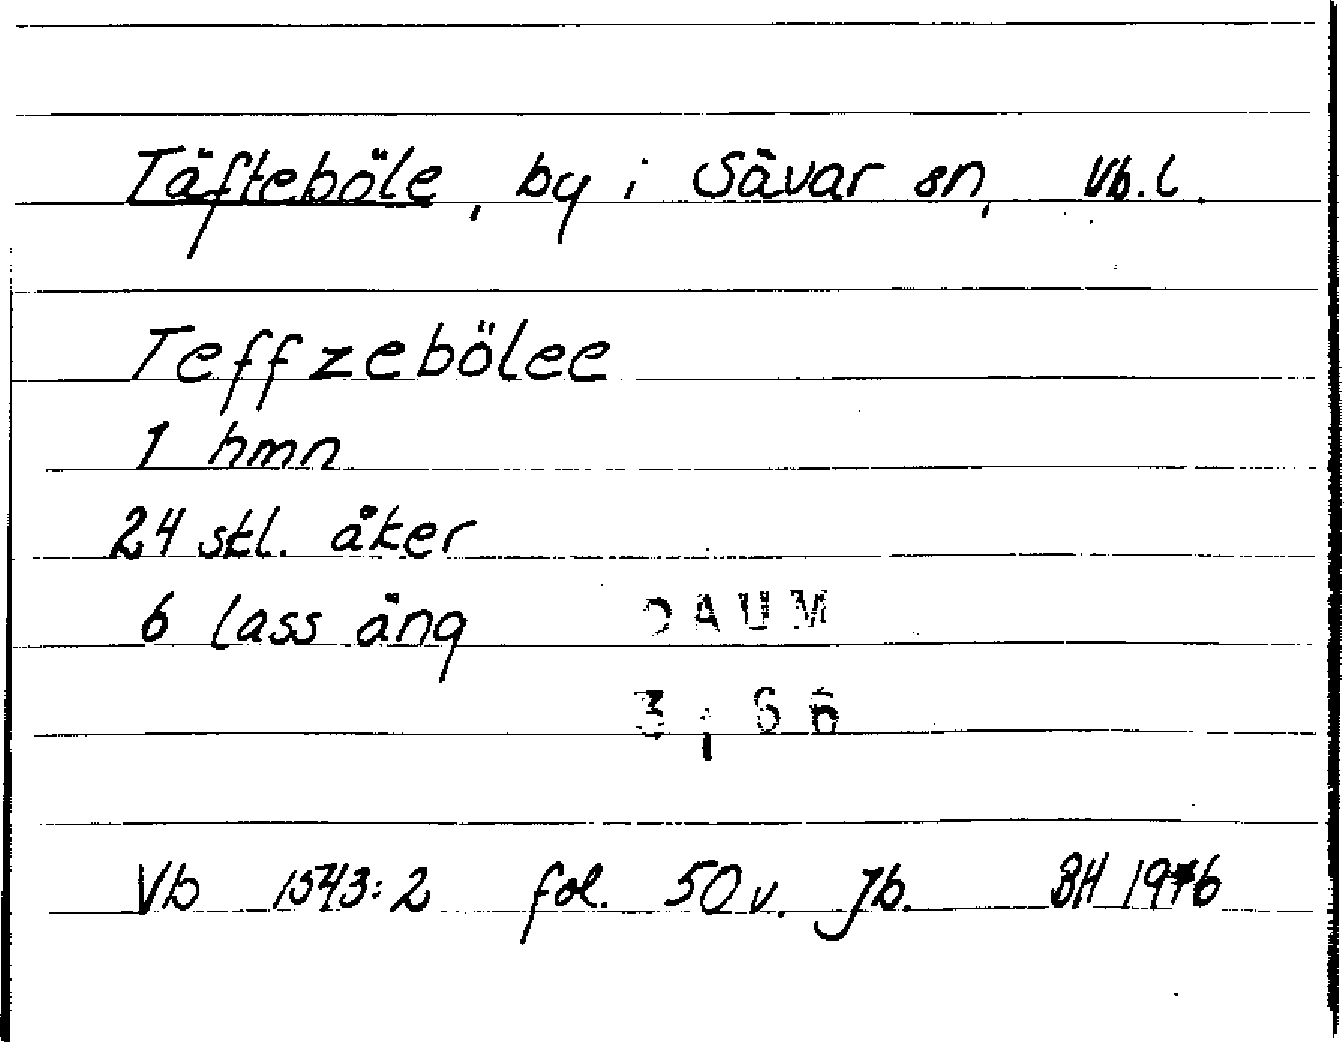 Täfteböle, by i Sävar sn, Vb.l.
Teffzebölee
1 hmn
24 skl. åker
6 lass äng
DAUM
3; 66
Vb 1543:2 fol. 50v. Jb. BH 1976